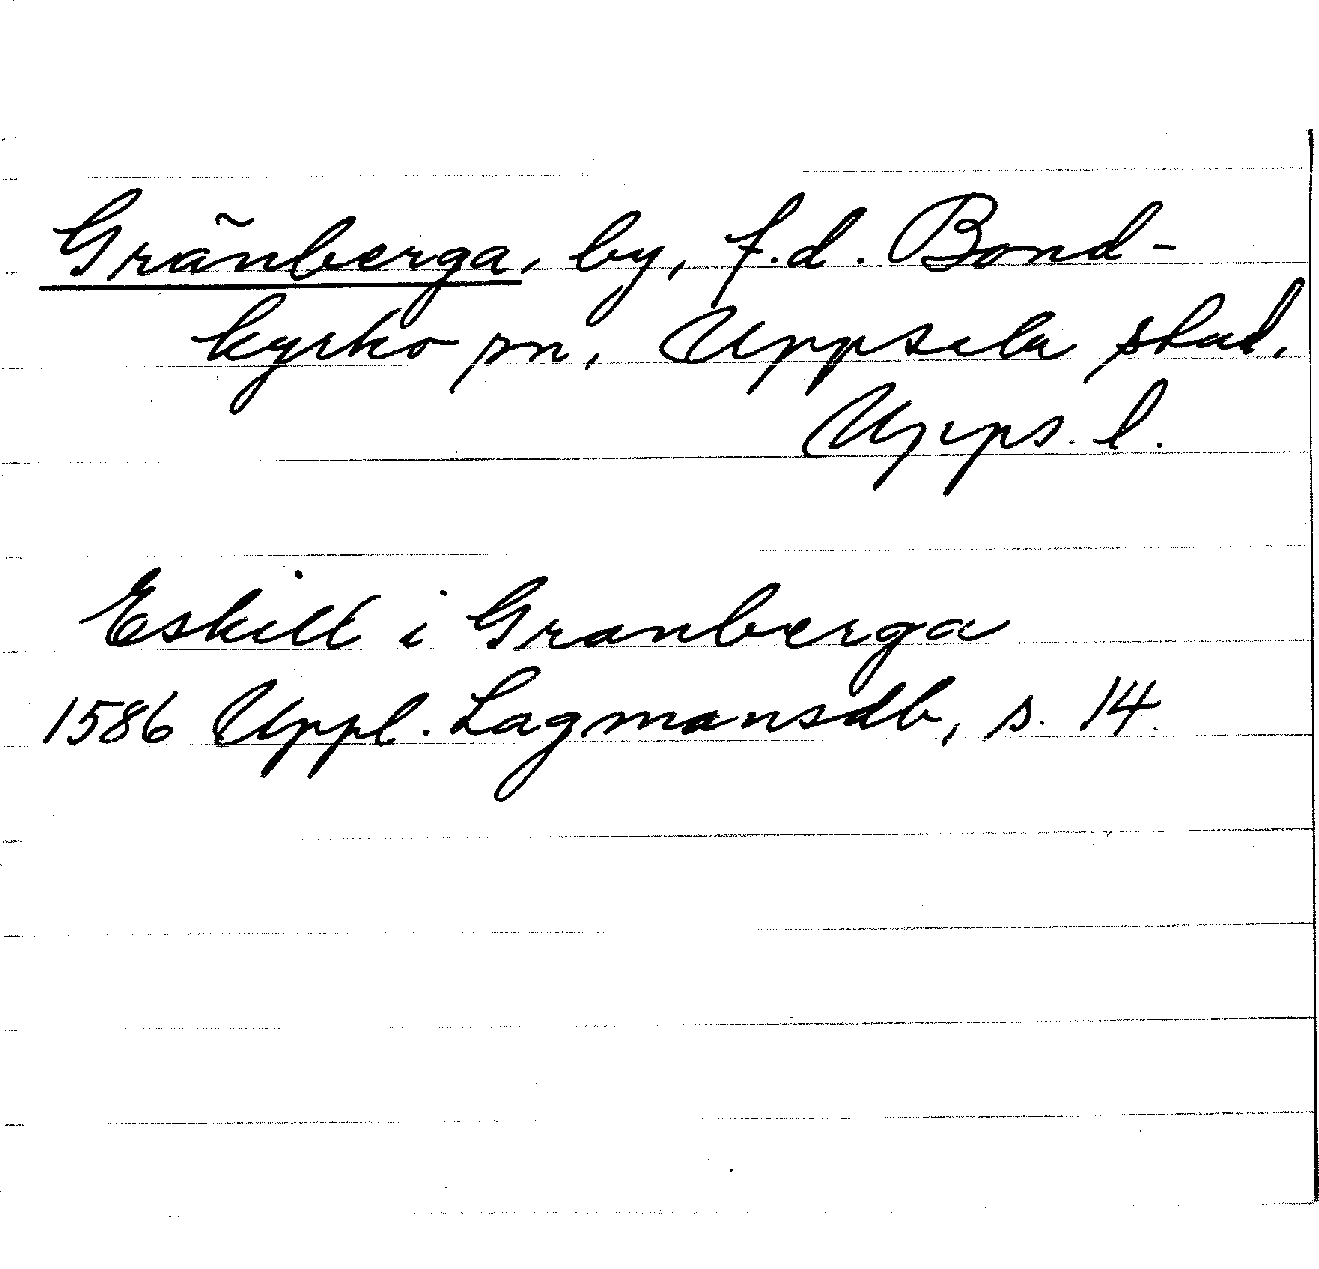 Gränberga, by, f.d. Bond-
kyrko sn, Uppsala stad,
Upps. l.
Eskill i Granberga
1586 Uppl. Lagmansdb, s. 14.